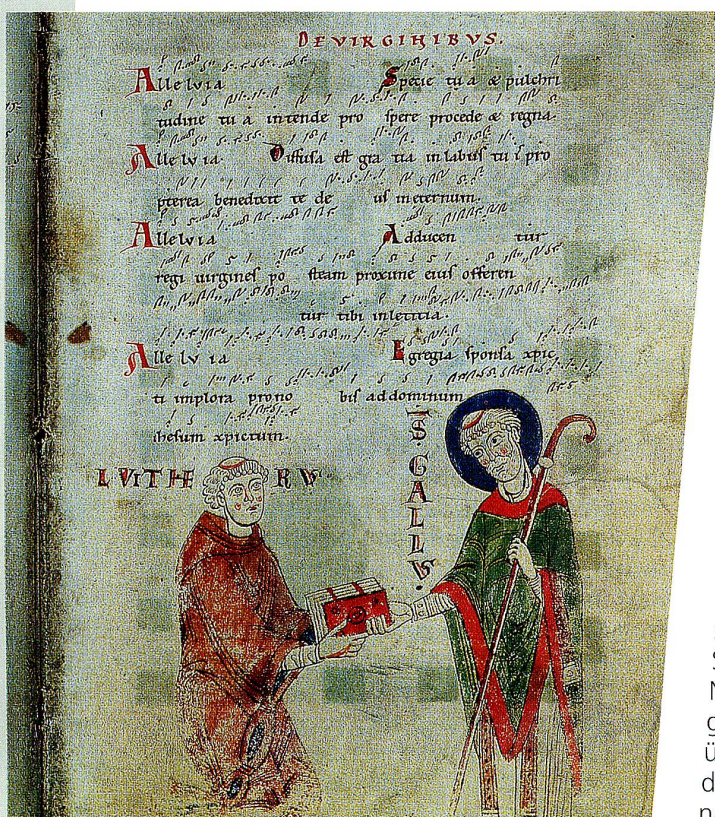 DE VIRGINIBVS.
Allelvia Specie tu a & pulchri
tudine tu a intende pro spere procede & regna.
Allelvia. Diffusa est gra tia in labiis tu i pro
pterea benedixit te de us in eternum.
Allelvia Adducen tur
regi uirgines po steam proxime eius offeren
tur tibi in leticia.
Allelvia Egregia sponsa xpic
ti implora pro no bis ad dominum
ihesum xpictum.
LVITHE RVS
S GALLVS.
S
N
g
ü
d
n